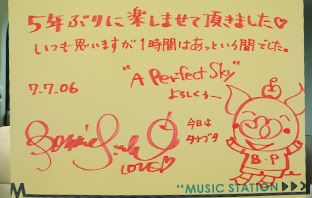 5年ぶりに楽しませて頂きました♡
いつも思いますが1時間はあっという間でした。
"A Perfect Sky"
よろしくぅー
7.7.06
Bonnie Pink
LOVE♡
今日は
タナブタ
B・P
"MUSIC STATION